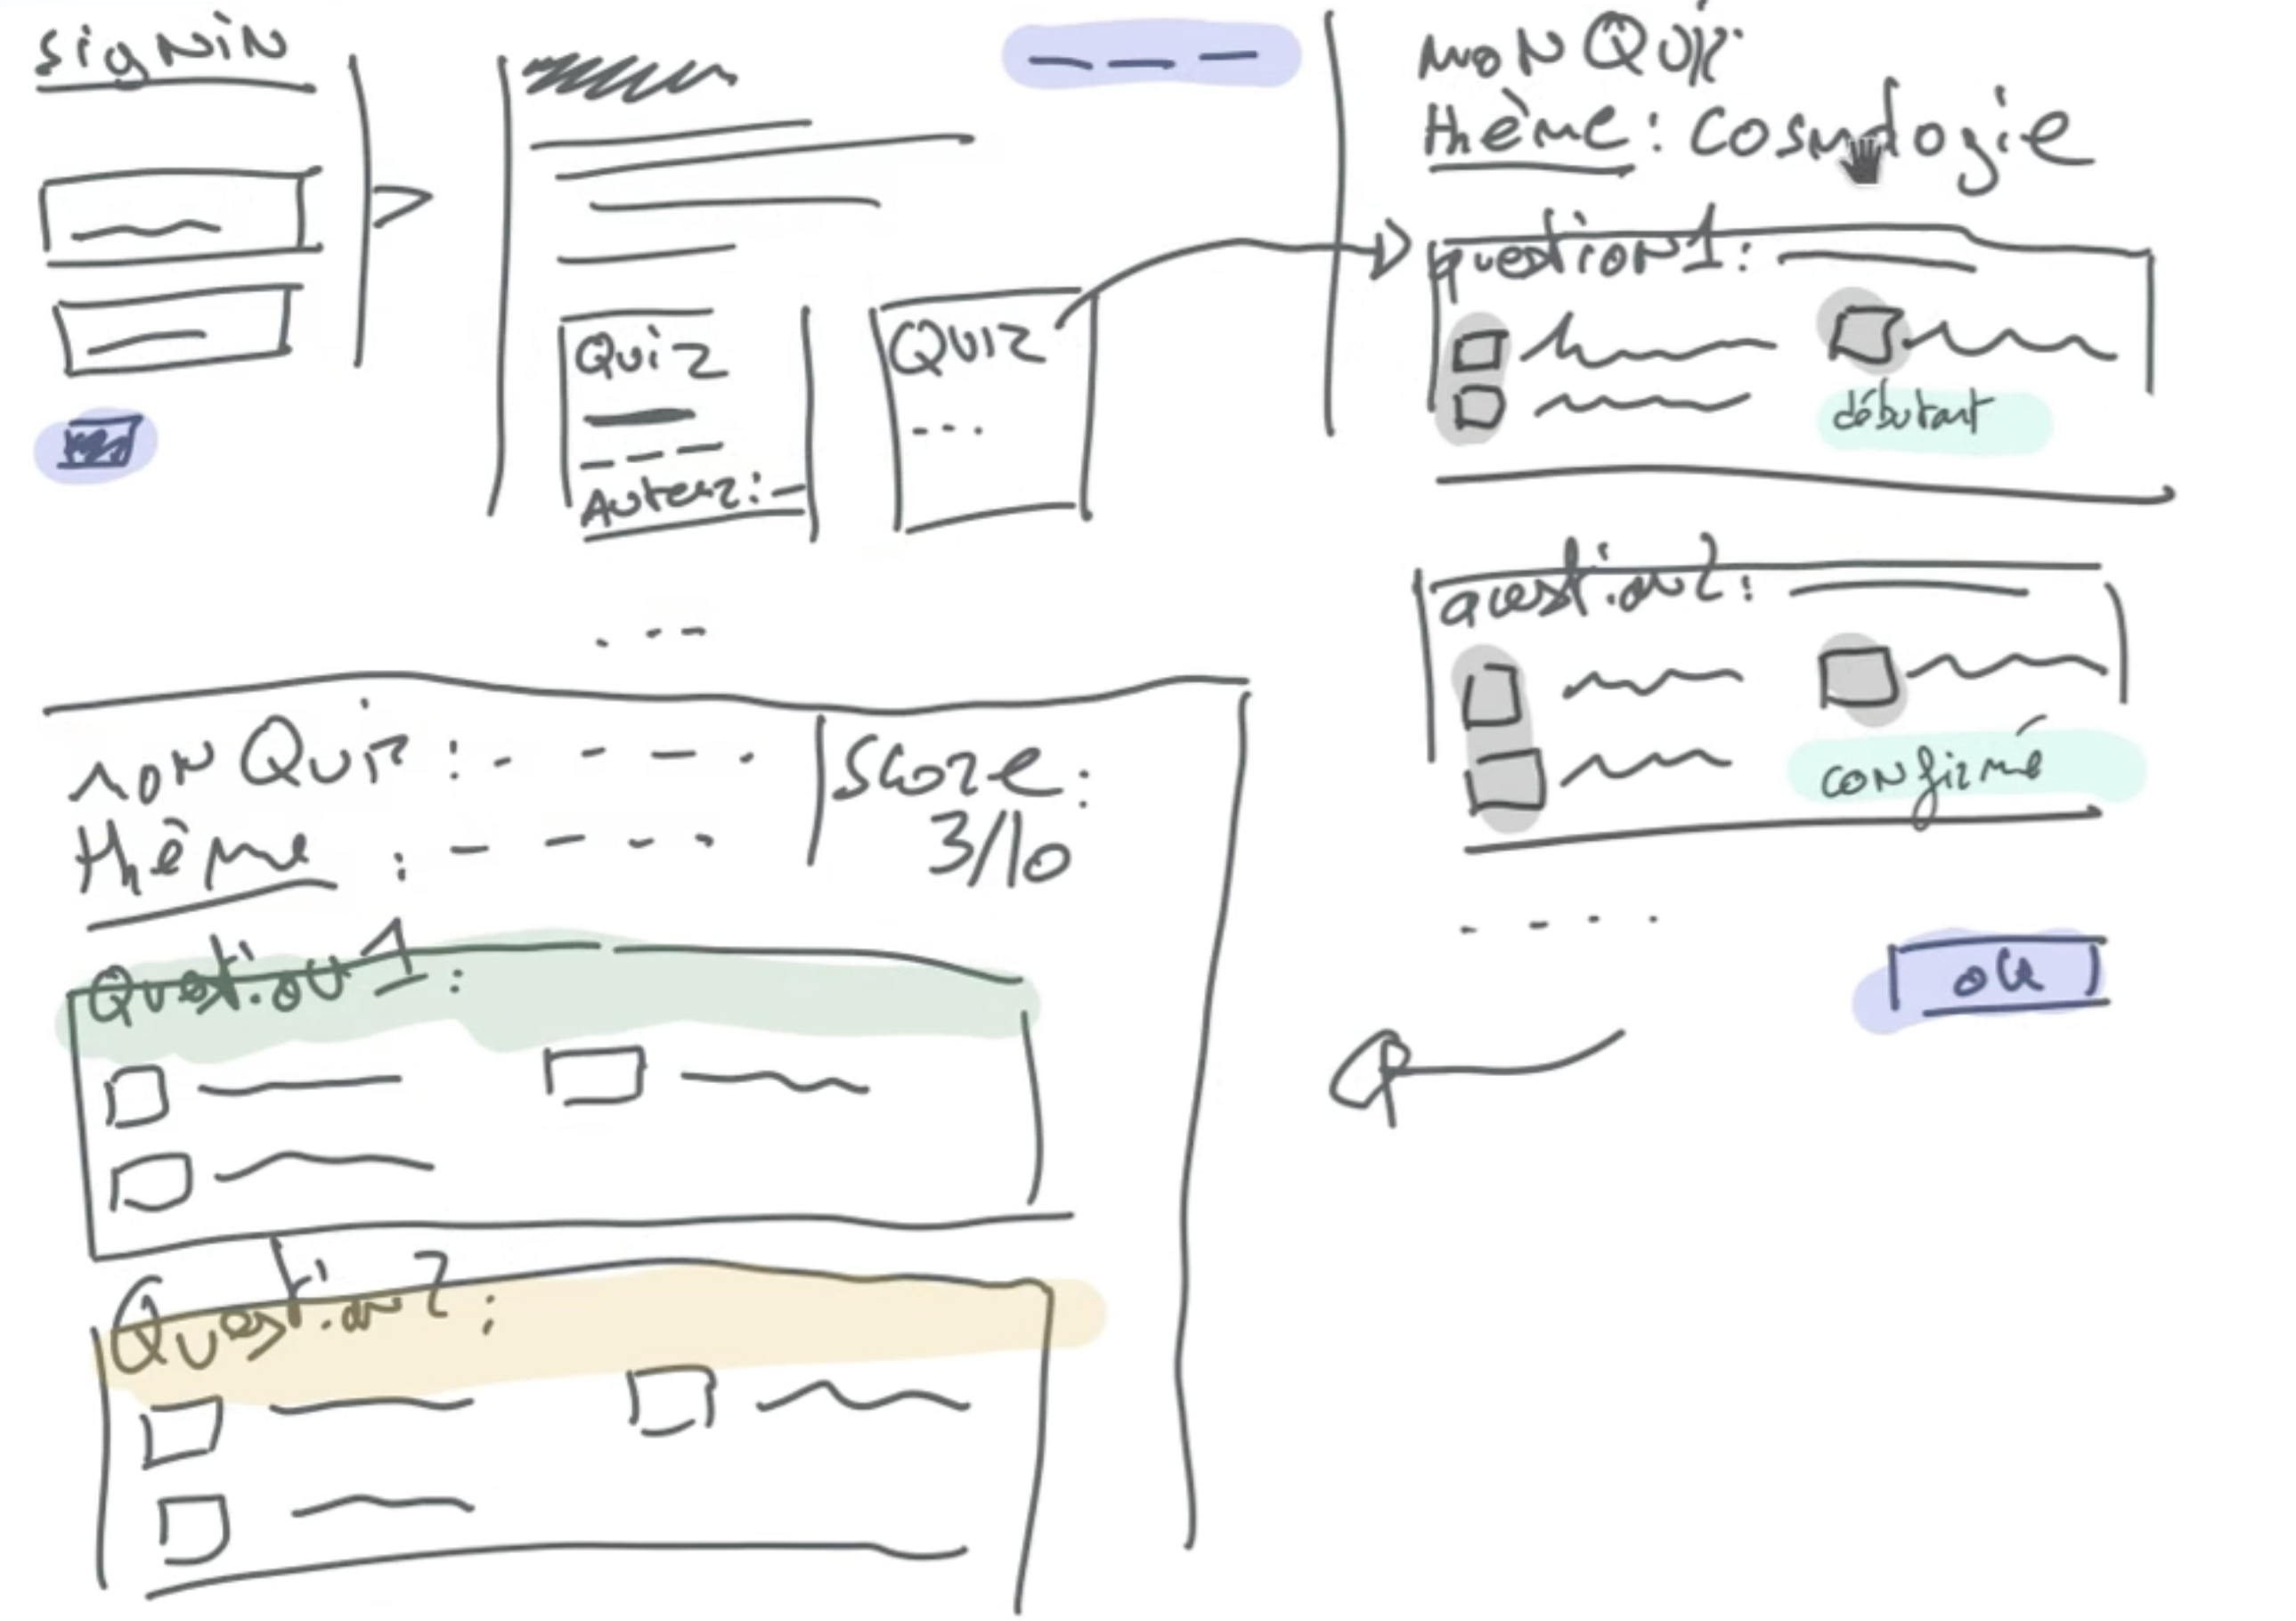 signin
Quiz
Auteur:
QUIZ
...
mon Quiz
thème: cosmologie
question 1:
débutant
question 2:
confirmé
ok
mon Quiz:
Score:
3/10
thème:
Question 1:
Question 2: